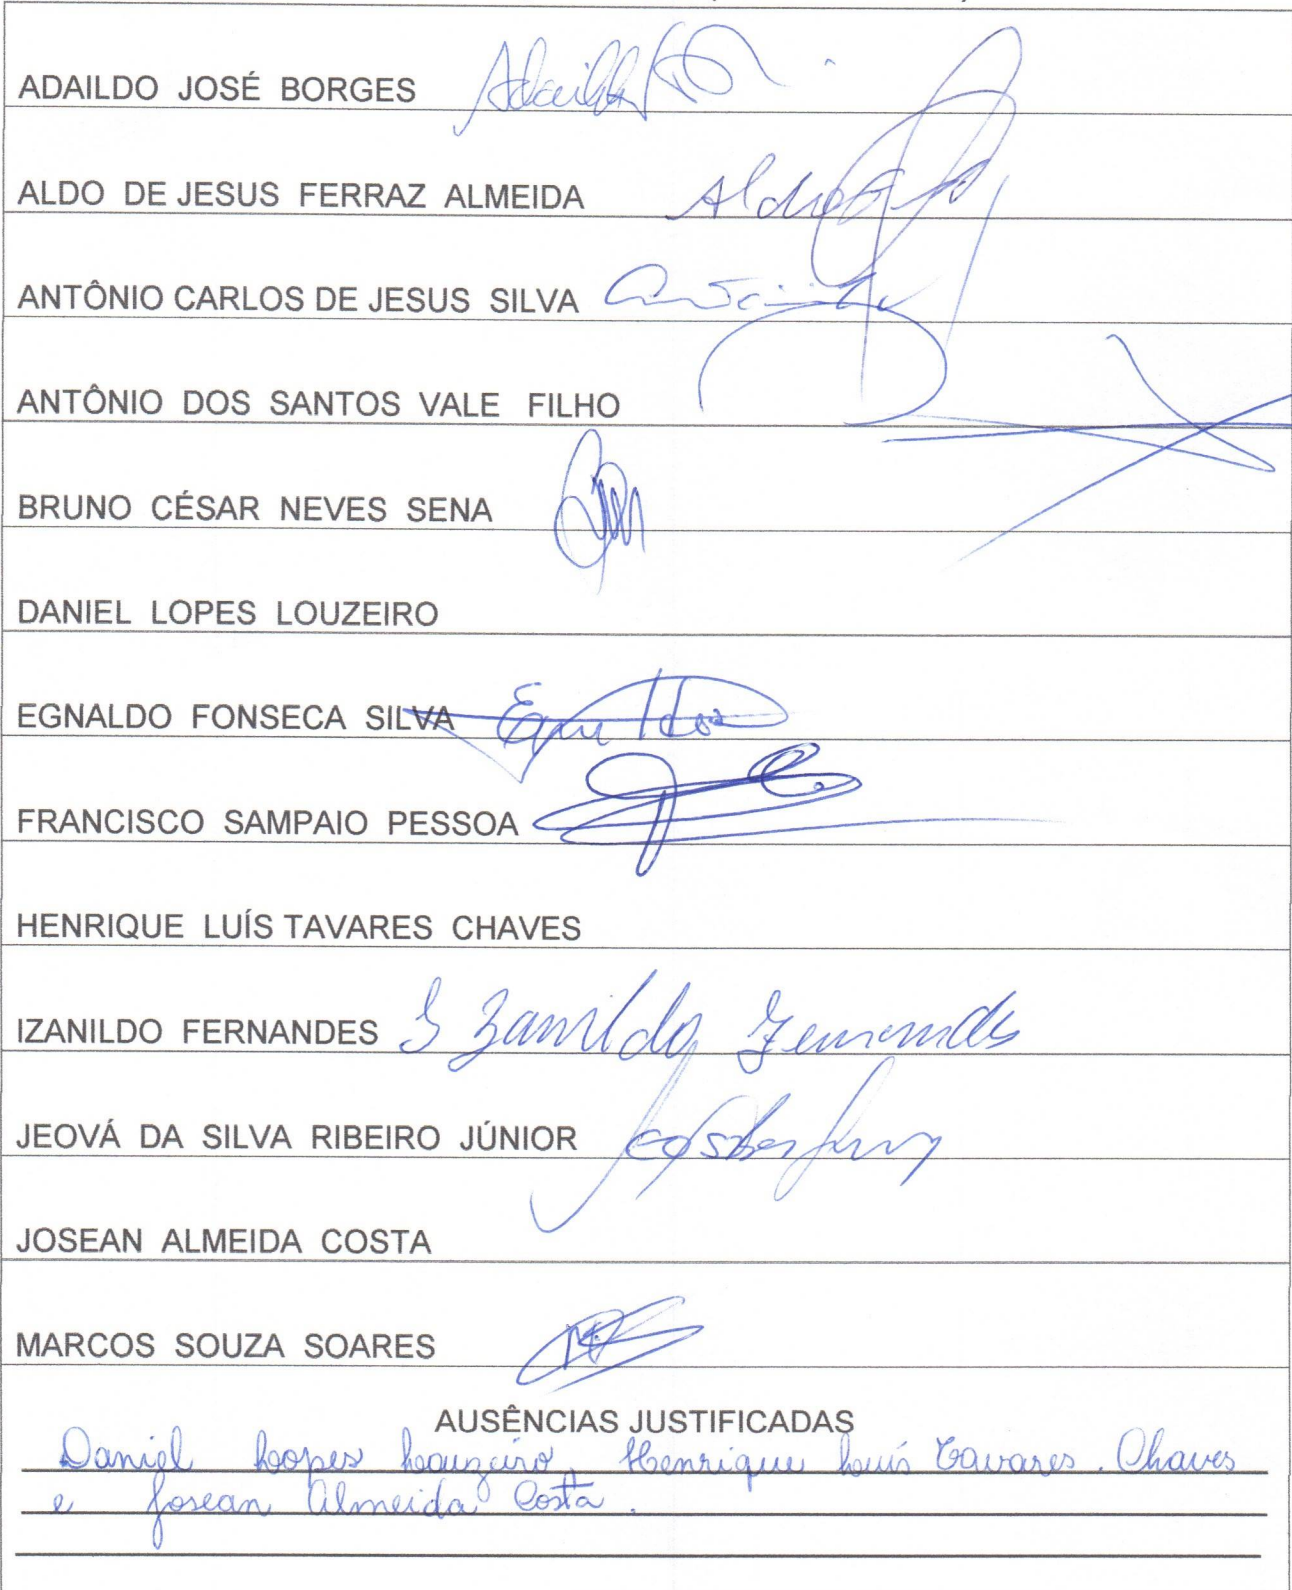 ADAILDO JOSÉ BORGES
ALDO DE JESUS FERRAZ ALMEIDA
ANTÔNIO CARLOS DE JESUS SILVA
ANTÔNIO DOS SANTOS VALE FILHO
BRUNO CÉSAR NEVES SENA
DANIEL LOPES LOUZEIRO
EGNALDO FONSECA SILVA
FRANCISCO SAMPAIO PESSOA
HENRIQUE LUÍS TAVARES CHAVES
IZANILDO FERNANDES Izanildo Fernandes
JEOVÁ DA SILVA RIBEIRO JÚNIOR
JOSEAN ALMEIDA COSTA
MARCOS SOUZA SOARES
AUSÊNCIAS JUSTIFICADAS
Daniel Lopes Louzeiro, Henrique Luís Tavares Chaves
e Josean Almeida Costa.